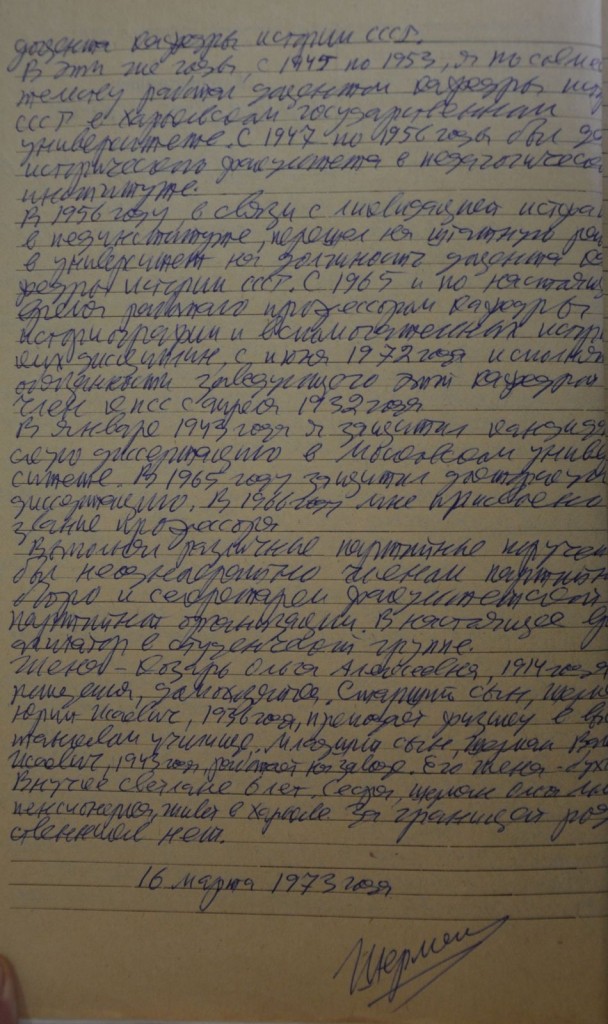 доцента кафедры истории СССР.
В эти же годы, с 1945 по 1953, я по совме
тельству работал доцентом кафедры ист
СССР в Харьковском государственном
университете. С 1947 по 1956 годы был де
исторического факультета в педагогическом
институте.
В 1956 году, в связи с ликвидацией истфака
в пединституте, перешел на штатную раб
в университет на должность доцента ка
федры истории СССР. С 1965 и по настоящее
время работаю профессором кафедры
историографии и вспомогательных истори
ких дисциплин, с июня 1972 года исполняю
обязанности заведующего этой кафедрой
Член КПСС с апреля 1932 года
В январе 1943 года я защитил кандидат
скую диссертацию в Московском универ
ситете. В 1965 году защитил докторскую
диссертацию. В 1966 году мне присвоено
звание профессора
Выполнял различные партийные поручен
был неоднократно членом партийн
бюро и секретарем факультетской
партийной организации. В настоящее вр
в студенческой группе.
Жена – Козырь Ольга Алексеевна, 1914 года
рождения, домохозяйка. Старший сын, Шерман
Юрий Исаевич, 1936 года, преподает физику в
училище. Младший сын, Шерман
Исаевич, 1943 года, работает на завод. Его жена
Внучке Светлане 6 лет. Сестра, Шерман
пенсионерка, живет в Харькове. За границей род
ственников нет.
16 марта 1973 года
Шерман